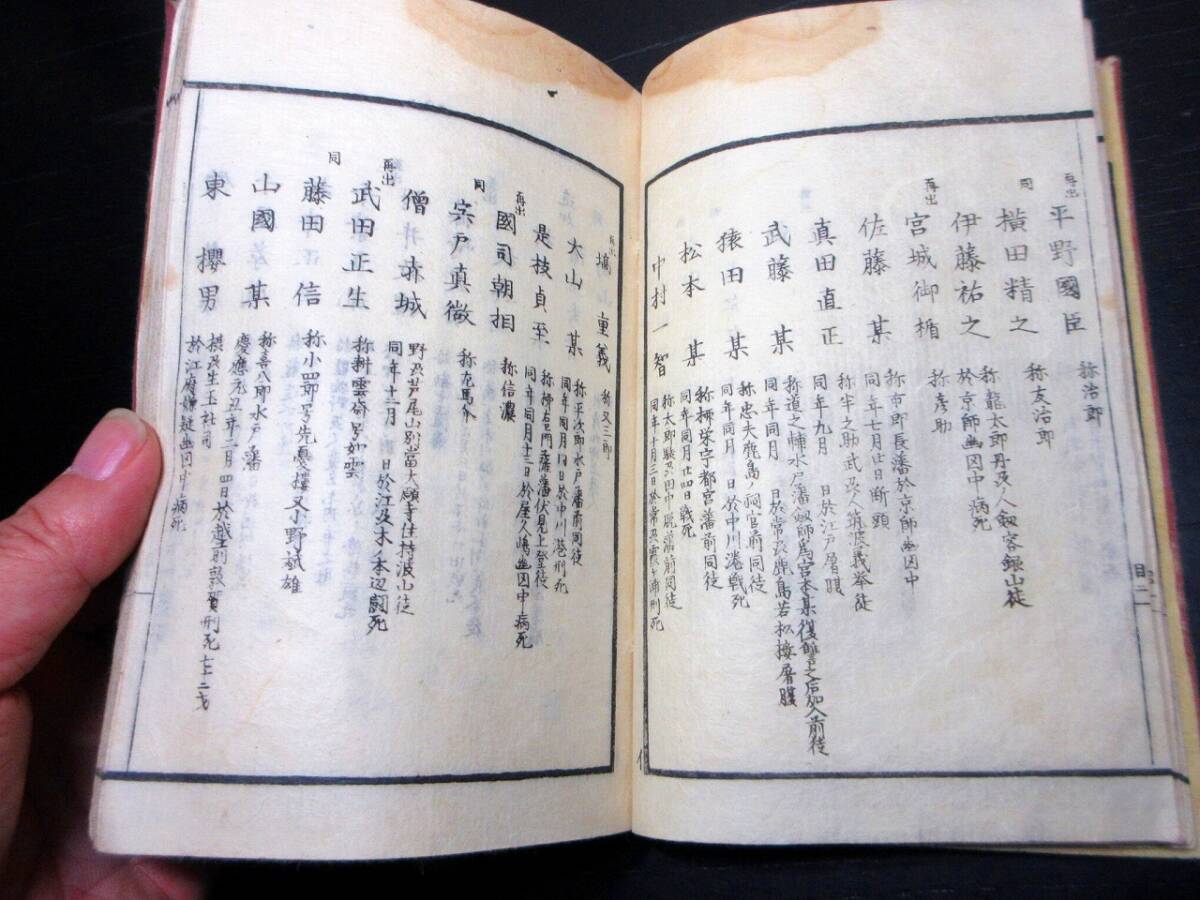 再出
平野國臣
称治郎
同
横田精之
称友治郎
伊藤祐之
称龍太郎丹及人釼客録山徒
於京師幽囚中病死
再出
宮城御楯
称彦助
佐藤 某
称市郎長藩於京師幽囚中
同年七月廿日断頸
真田直正
称半之助武及人筑波義挙徒
同年九月 日於江戸屠腹
武藤 某
称道之輔水戸藩釼師為宮本某復讐之后加入前徒
同年同月 日於常及鹿島若松楼屠腹
猿田 某
称忠夫鹿島ノ祠官前同徒
同年同月 日於中川港戦死
松本 某
称栄宇都宮藩前同徒
同年同月廿四日戦死
中村一智
称太郎
同年十月三日於常
再出
塙 重義
称又三郎
大山 某
称平次郎水戸藩前同徒
同年同月 日於中川港刑死
是枝貞至
称柳右門薩藩伏見上登徒
同年同月十三日於屋久嶋幽囚中病死
再出
國司朝相
称信濃
同
宍戸真澂
称左馬介
僧井赤城
野及芦尾山別當大願寺住持波山徒
同年十二月 日於江及木本辺闘死
再出
武田正生
称耕雲斎号如雲
同
藤田 信
称小四郎号先憂樓又小野斌雄
山國 某
称喜八郎水戸藩
慶應元丑年二月四日於越前敦賀刑死七十二才
東 櫻男
摂及生玉社司
於江府嫌疑幽囚中病死
目二